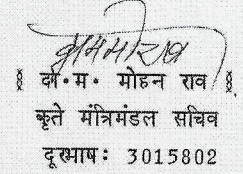 § दं॰म॰ मोहन राव §
कृते मंत्रिमंडल सचिव
दूरभाष: 3015802